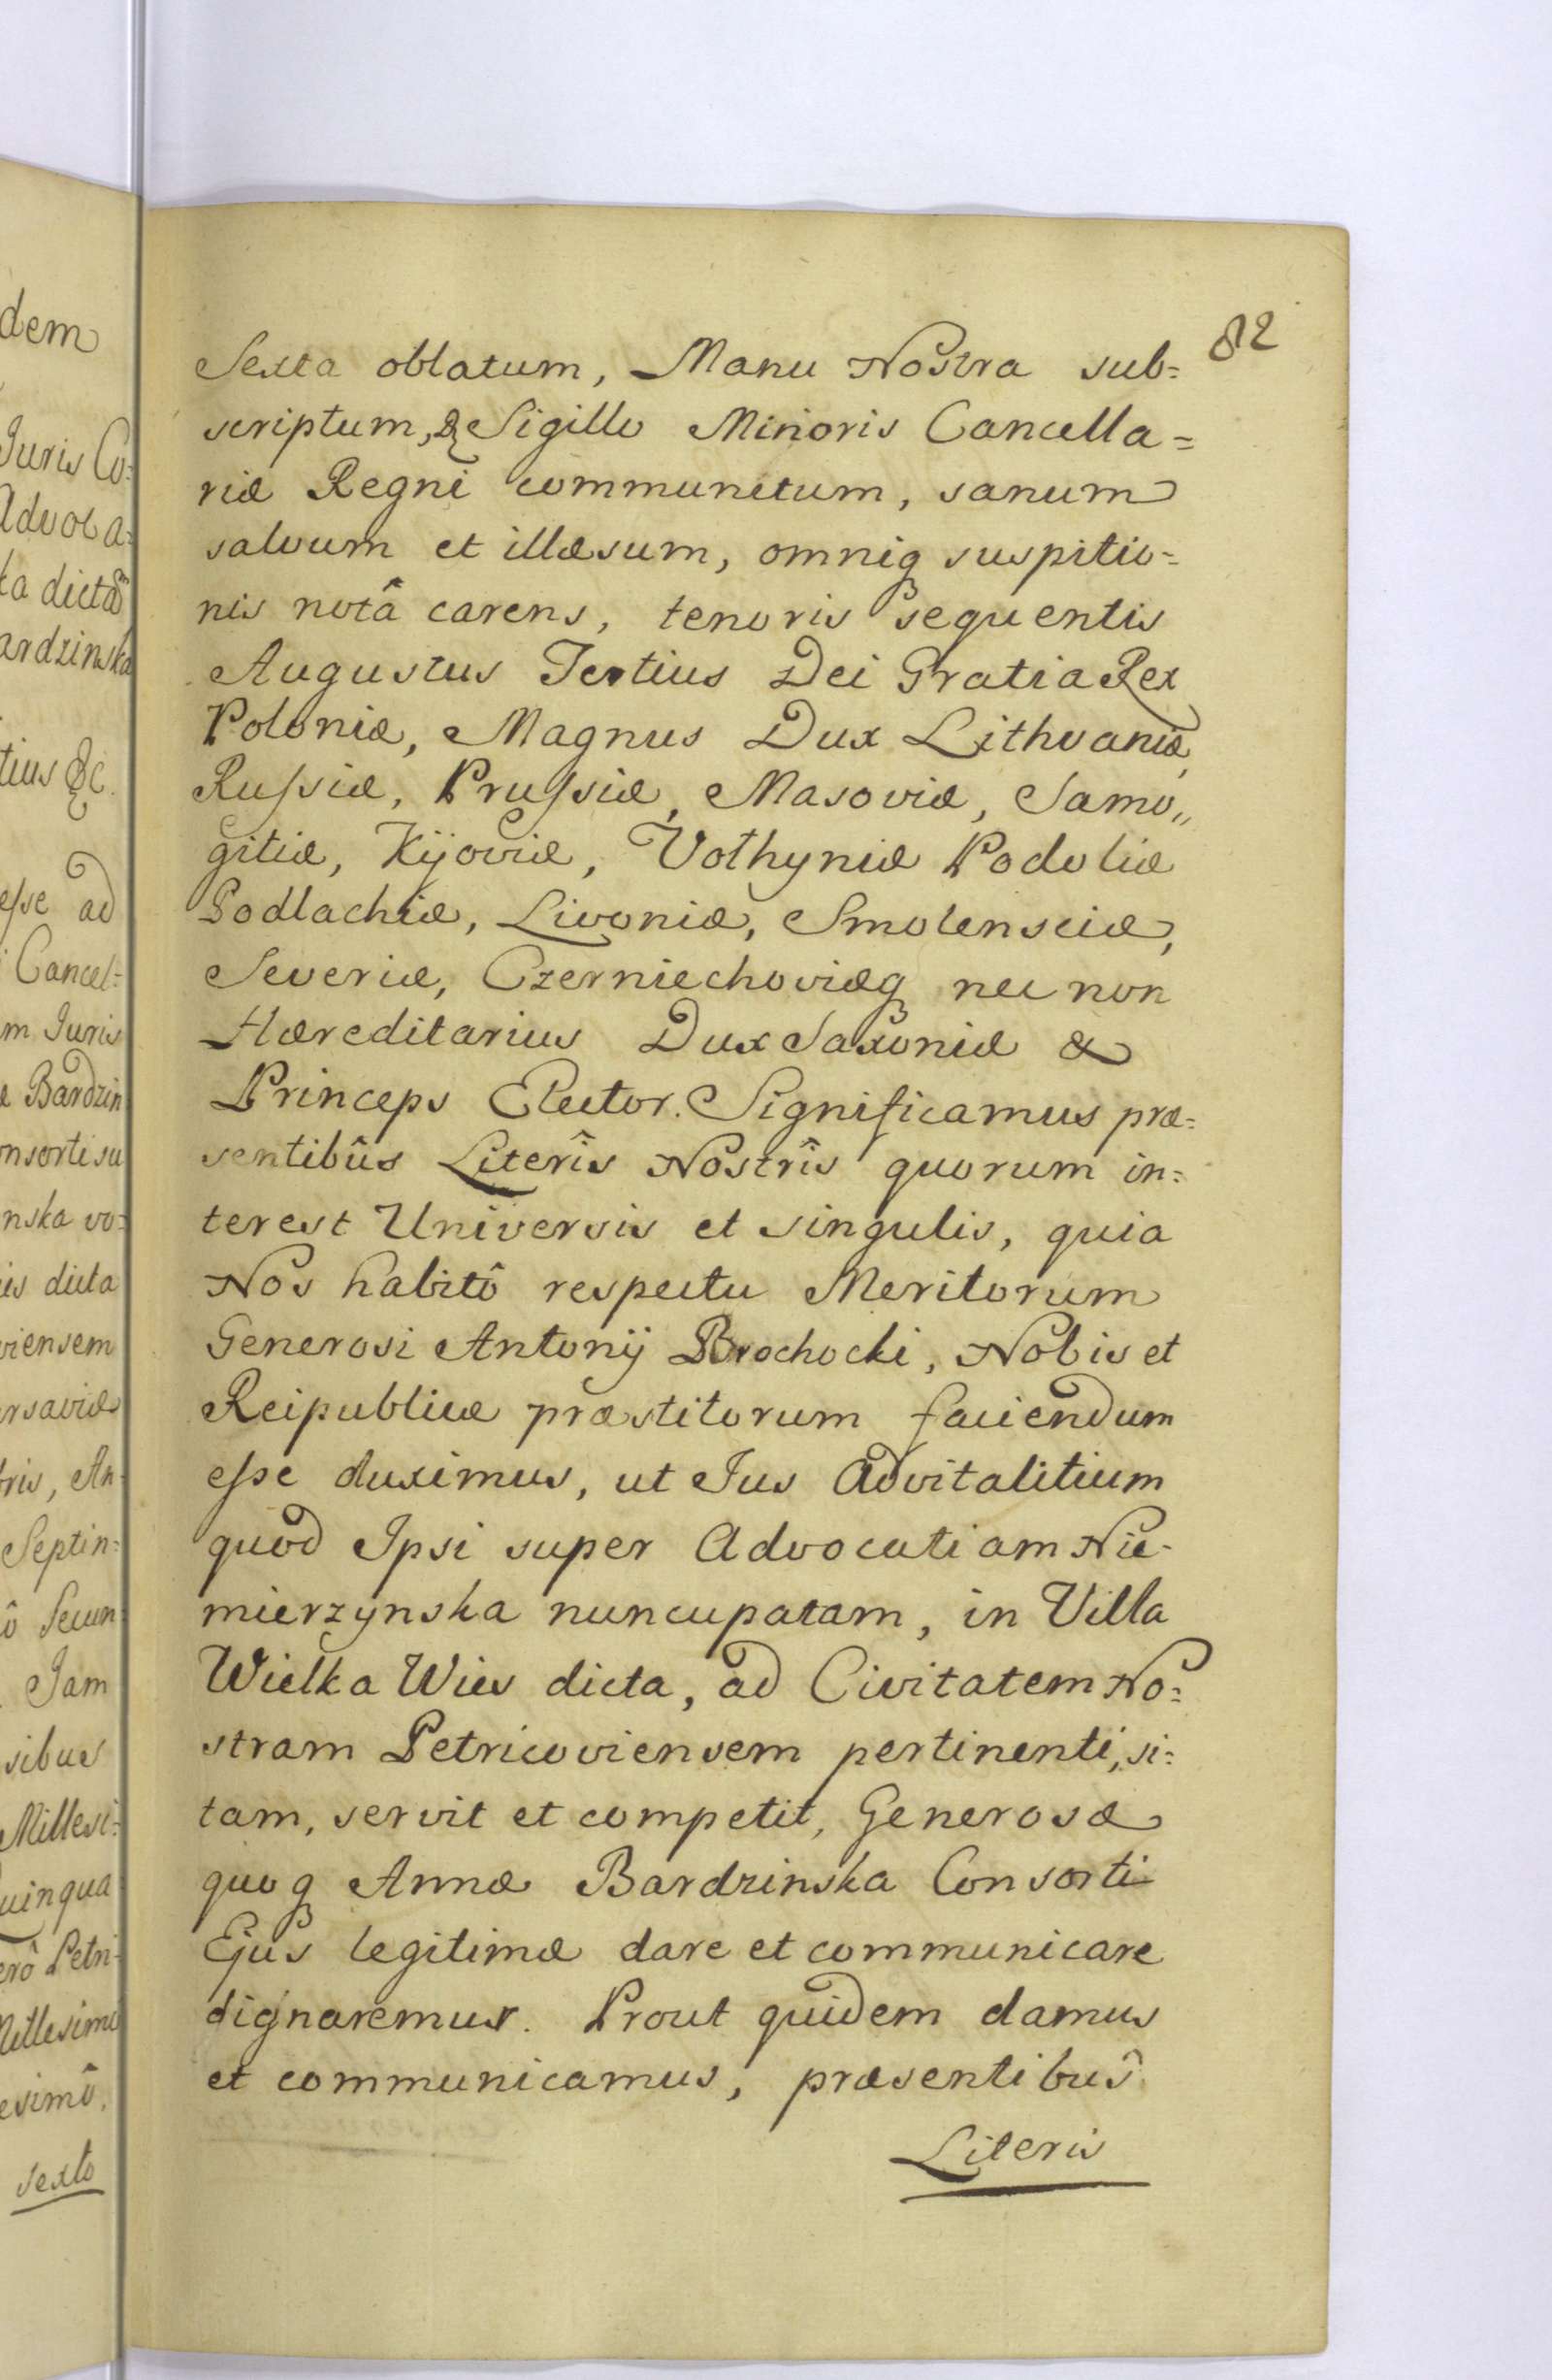 82
Sexta oblatum, Manu Nostra sub=
scriptum, & Sigillo Minoris Cancella=
riæ Regni communitum, sanum
salvum et illæsum, omniq suspitio=
nis notâ carens, tenoris sequentis
Augustus Tertius Dei Gratia Rex
Poloniæ, Magnus Dux Lithvaniæ,
Ruſsiæ, Pruſsiæ, Masoviæ, Samo„
gitiæ, Kijoviæ, Volhyniæ Podoliæ
Podlachiæ, Livoniæ, Smolensciæ,
Severiæ, Czerniechoviæq nec non
Hæreditarius Dux Saxoniæ &
Princeps Elector. Significamus præ=
sentibûs Literîs Nostrîs quorum in=
terest Universis et singulis, quia
Nos habitô respectu Meritorum
Generosi Antonij Brochocki, Nobis et
Reipublicæ præstitorum faciendum
eſse duximus, ut Jus Advitalitium
quod Ipsi super Advocatiam Nie-
mierzynska nuncupatam, in Villa
Wielka Wies dicta, ad Civitatem No=
stram Petricoviensem pertinenti, si=
tam, servit et competit, Generosæ
quoq Annæ Bardzinska Consorti
Ejus legitimæ dare et communicare
dignaremur. Prout quidem damus
et communicamus, præsentibûs
Literis
dem
Juris Co=
Advoca=
ka dictâ
ardzinska
tius &c.
eſse ad
Cancel=
m Juris
æ Bardzin
onsorti su
nska vo=
is dicta
viensem
rsaviæ
bris, An
Septin=
ô Secun
Jam
sibus
Millesi=
uinqua
erô Petri-
Millesimo
esimô.
sexto